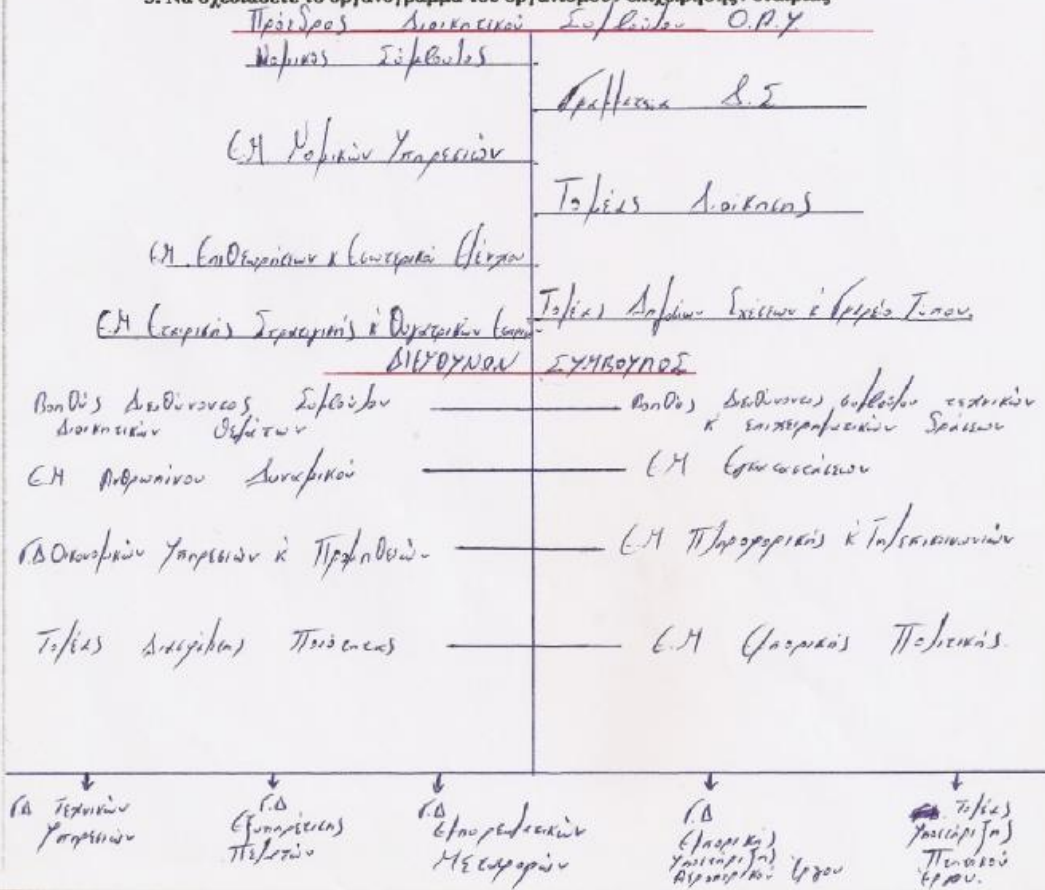 3. Να σχεδιάσετε το οργανόγραμμα του οργανισμού/ επιχείρησης/ εταιρίας
Πρόεδρος Διοικητικού Συμβούλου Ο.Α.Υ.
Νομικος Σύμβουλος
Γραμματεια Δ.Σ
Ε.Μ Νομικών Υπηρεσιών
Τομέας Διοίκησης
Ε.Μ Επιθεωρήσεων κ Εσωτερικού Ελέγχου
Τομέας Δημόσιων Σχέσεων κ Γραφείο Τυπου.
Ε.Μ Εταιρικής Στρατηγικής κ Θυγατρικών
ΔΙΕΥΘΥΝΩΝ ΣΥΜΒΟΥΛΟΣ
Βοηθός Διευθύνοντος Συμβούλου
Διοικητικών Θεμάτων
Βοηθός Διευθύνοντος συμβούλου τεχνικών
κ επιχειρηματικών δράσεων
Ε.Μ Ανθρωπίνου Δυναμικού
Ε.Μ Εγκαταστάσεων
Γ.Δ Οικονομικών Υπηρεσιών κ Προμηθειών
Ε.Μ Πληροφορικής κ Τηλεπικοινωνιών
Τομέας Διασφάλισης Ποιότητας
Ε.Μ Εμπορικής Πολιτικής.
Γ.Δ Τεχνικών
Υπηρεσιών
Γ.Δ
Εξυπηρέτισης
Πελατών
Γ.Δ
Εμπορευματικών
Μεταφορών
Γ.Δ
Εμπορικής
Υποστήριξης
Αεροπορικού Έργου
Τομέας
Υποστήριξης
Πτητικού
Έργου.